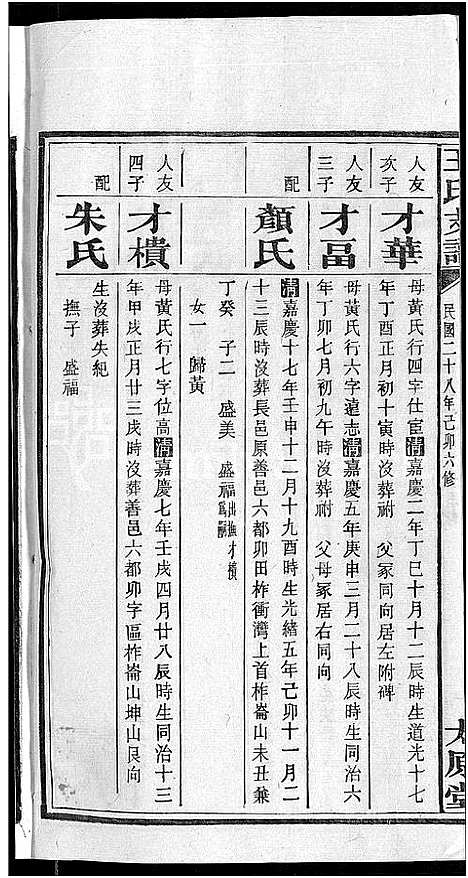 王氏支譜
民國二十八年己卯六修
太原堂
人友
次子
才華
母黃氏行四字仕宦清嘉慶二年丁巳十月十二辰時生道光十七
年丁酉正月初十寅時沒葬祔 父冢同向居左附碑
人友
三子
才畐
母黃氏行六字遠志清嘉慶五年庚申三月二十八辰時生同治六
年丁卯七月初九午時沒葬祔 父母冢居右同向
配
顏氏
清嘉慶十七年壬申十二月十九酉時生光緒五年己卯十一月二
十三辰時沒葬長邑原善邑六都卯田柞衝灣上首柞崙山未丑兼
丁癸 子二 盛美 盛福出撫才横爲嗣
女一 歸黃
人友
四子
才横
母黃氏行七字位高清嘉慶七年壬戌四月廿八辰時生同治十三
年甲戌正月廿三戌時沒葬善邑六都卯字區柞崙山坤山艮向
配
朱氏
生沒葬失紀
撫子 盛福